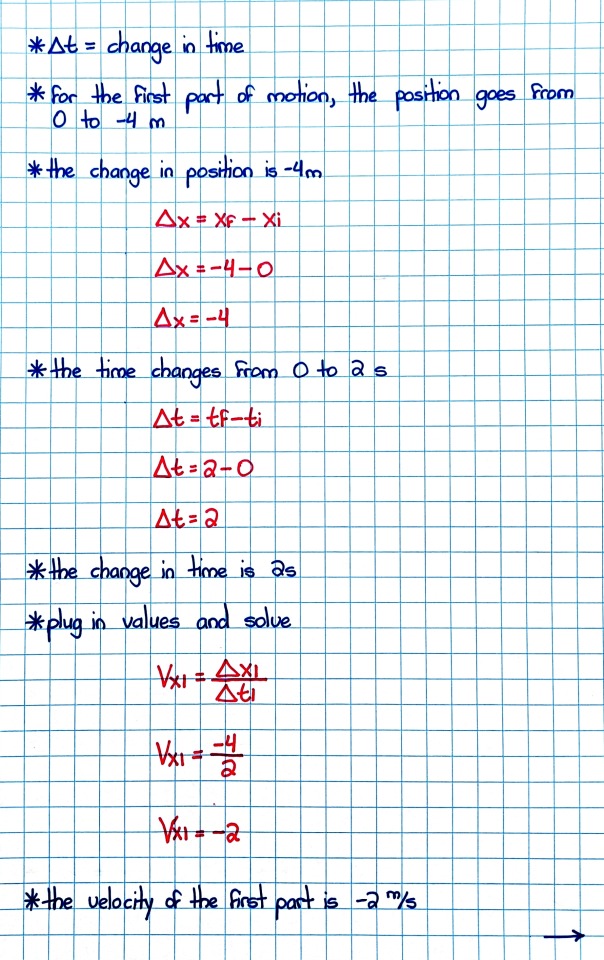 *Δt = change in time
*for the first part of motion, the position goes from
0 to -4 m
*the change in position is -4m
Δx = xf - xi
Δx = -4 - 0
Δx = -4
*the time changes from 0 to 2 s
Δt = tf - ti
Δt = 2 - 0
Δt = 2
*the change in time is 2s
*plug in values and solve
Vx1 = Δx1/Δt1
Vx1 = -4/2
Vx1 = -2
*the velocity of the first part is -2 m/s
→